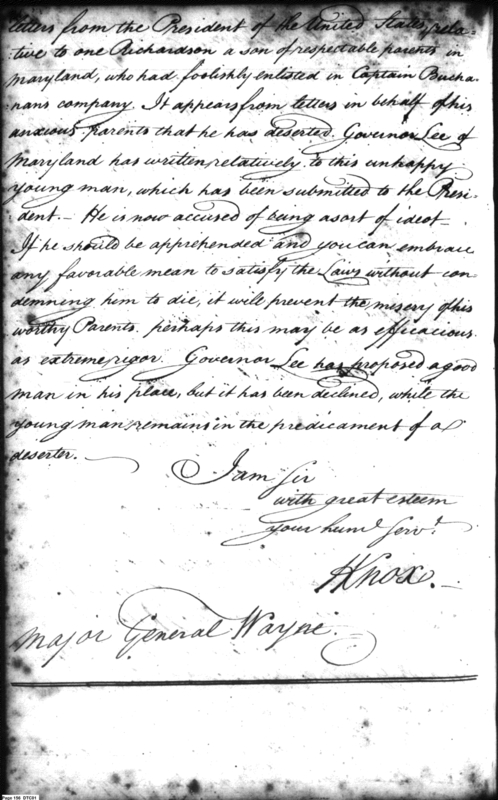 letters from the President of the United States, rela-
tive to one Richardson a son of respectable parents in
Maryland, who had foolishly enlisted in Captain Bucha-
nans company. It appears from letters in behalf of his
anxious parents that he has deserted. Governor Lee of
Maryland has written, relatively to this unhappy
young man, which has been submitted to the Presi-
dent.— He is now accused of being a sort of ideot—
If he should be apprehended and you can embrace
any favorable mean to satisfy the Laws without con-
demning him to die, it will prevent the misery of his
worthy Parents. perhaps this may be as efficacious
as extreme rigor. Governor Lee has proposed a good
man in his place, but it has been declined, while the
young man remains in the predicament of a
deserter.—
I am Sir
with great esteem
your huml Servt.
HKnox.—
Major General Wayne.
Page 196 DTC01